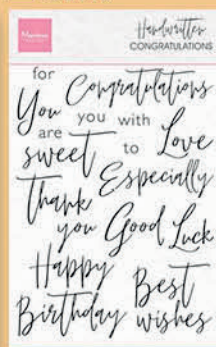 Marianne
Handwritten
CONGRATULATIONS
for
Congratulations
You
you with
are
Love
sweet
to
Especially
Thank
you
Good Luck
Happy
Birthday
Best
wishes